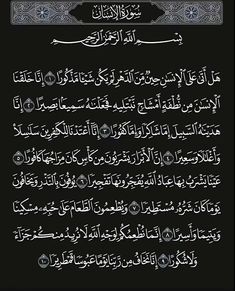 سُورَةُ الإِنسَان
بِسْمِ اللَّهِ الرَّحْمَٰنِ الرَّحِيمِ
هَلْ أَتَىٰ عَلَى الْإِنسَٰنِ حِينٌ مِّنَ الدَّهْرِ لَمْ يَكُن شَيْـًٔا مَّذْكُورًا ١ إِنَّا خَلَقْنَا
الْإِنسَٰنَ مِن نُّطْفَةٍ أَمْشَاجٍ نَّبْتَلِيهِ فَجَعَلْنَٰهُ سَمِيعًۢا بَصِيرًا ٢ إِنَّا
هَدَيْنَٰهُ السَّبِيلَ إِمَّا شَاكِرًا وَإِمَّا كَفُورًا ٣ إِنَّآ أَعْتَدْنَا لِلْكَٰفِرِينَ سَلَٰسِلَا۟
وَأَغْلَٰلًا وَسَعِيرًا ٤ إِنَّ الْأَبْرَارَ يَشْرَبُونَ مِن كَأْسٍ كَانَ مِزَاجُهَا كَافُورًا ٥
عَيْنًا يَشْرَبُ بِهَا عِبَادُ اللَّهِ يُفَجِّرُونَهَا تَفْجِيرًا ٦ يُوفُونَ بِالنَّذْرِ وَيَخَافُونَ
يَوْمًا كَانَ شَرُّهُۥ مُسْتَطِيرًا ٧ وَيُطْعِمُونَ الطَّعَامَ عَلَىٰ حُبِّهِۦ مِسْكِينًا
وَيَتِيمًا وَأَسِيرًا ٨ إِنَّمَا نُطْعِمُكُمْ لِوَجْهِ اللَّهِ لَا نُرِيدُ مِنكُمْ جَزَآءً
وَلَا شُكُورًا ٩ إِنَّا نَخَافُ مِن رَّبِّنَا يَوْمًا عَبُوسًا قَمْطَرِيرًا ١٠